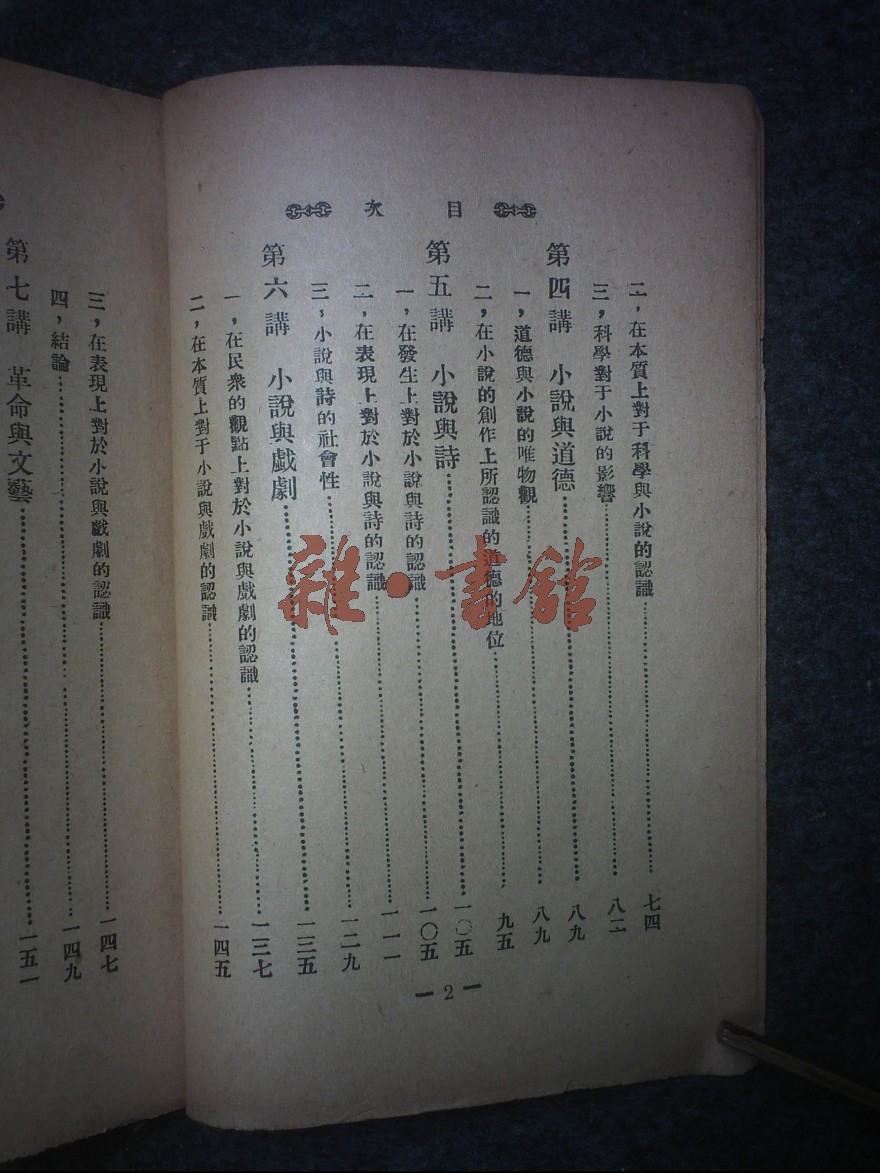 目次
二，在本質上對于科學與小說的認識 七四
三，科學對于小說的影響 八二
第四講 小說與道德 八九
一，道德與小說的唯物觀 八九
二，在小說的創作上所認識的道德的地位 九五
第五講 小說與詩 一〇五
一，在發生上對於小說與詩的認識 一〇五
二，在表現上對於小說與詩的認識 一一一
三，小說與詩的社會性 一二九
第六講 小說與戲劇 一三五
一，在民衆的觀點上對於小說與戲劇的認識 一三七
二，在本質上對于小說與戲劇的認識 一四五
2
三，在表現上對於小說與戲劇的認識 一四七
四，結論 一四九
第七講 革命與文藝 一五一
雜·書館